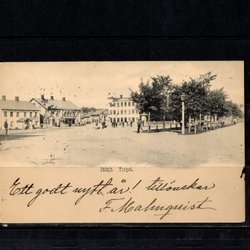 Torget.
Ett godt nytt år! tillönskar
F. Malmquist